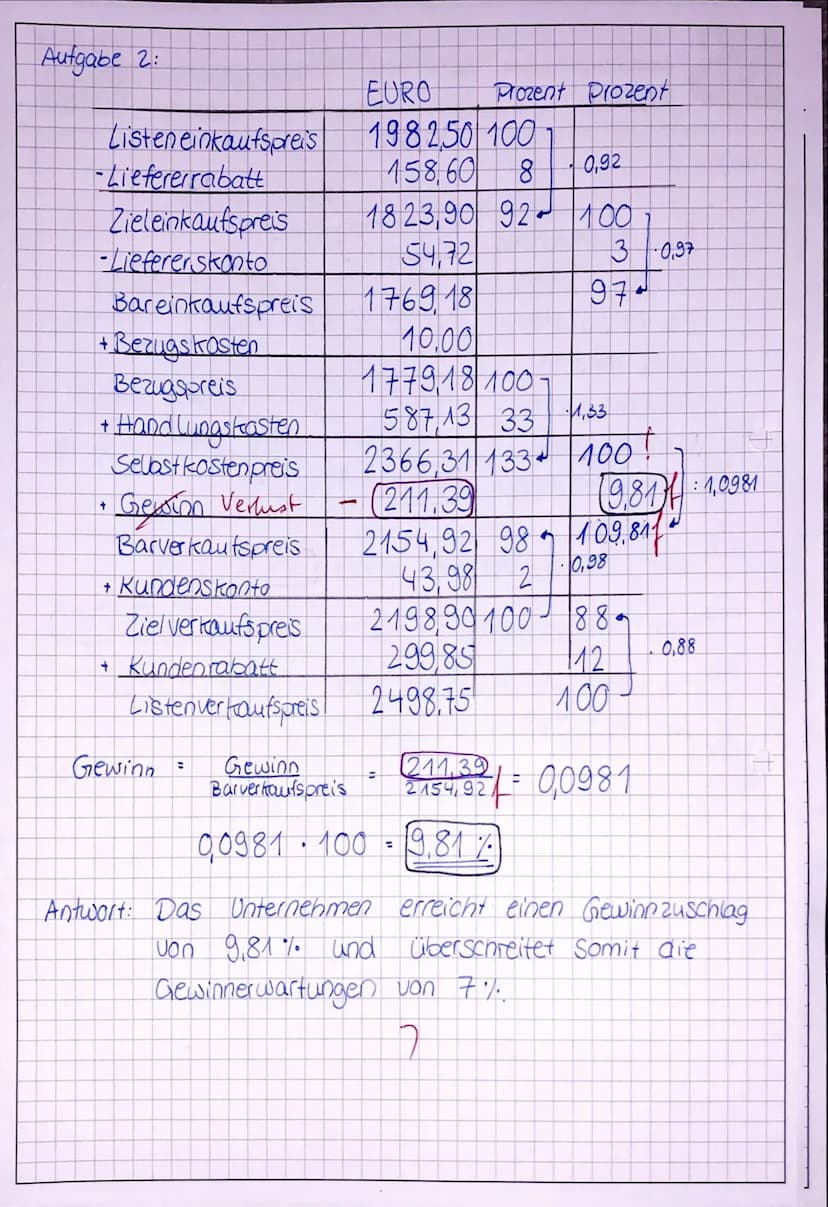 Aufgabe 2:
EURO Prozent Prozent
Listeneinkaufspreis 1982,50 100
-Liefererrabatt 158,60 8 · 0,92
Zieleinkaufspreis 1823,90 92 100
-Liefererskonto 54,72 3 ·0,97
Bareinkaufspreis 1769,18 97
+ Bezugskosten 10,00
Bezugspreis 1779,18 100
+ Handlungskosten 587,13 33 ·1,33
Selbstkostenpreis 2366,31 133 100 !
+ Gewinn Verlust - 211,39 9,81 f : 1,0981
Barverkaufspreis 2154,92 98 109,81 f
+ Kundenskonto 43,98 2 ·0,98
Zielverkaufspreis 2198,90 100 88
+ Kundenrabatt 299,85 12 · 0,88
Listenverkaufspreis 2498,75 100
Gewinn = Gewinn = 211,39 = 0,0981
Barverkaufspreis 2154,92 f
0,0981 · 100 = 9,81 %
Antwort: Das Unternehmen erreicht einen Gewinnzuschlag
von 9,81 % und überschreitet somit die
Gewinnerwartungen von 7 %.